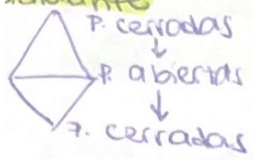 P. cerradas
↓
P. abiertas
↓
P. cerradas